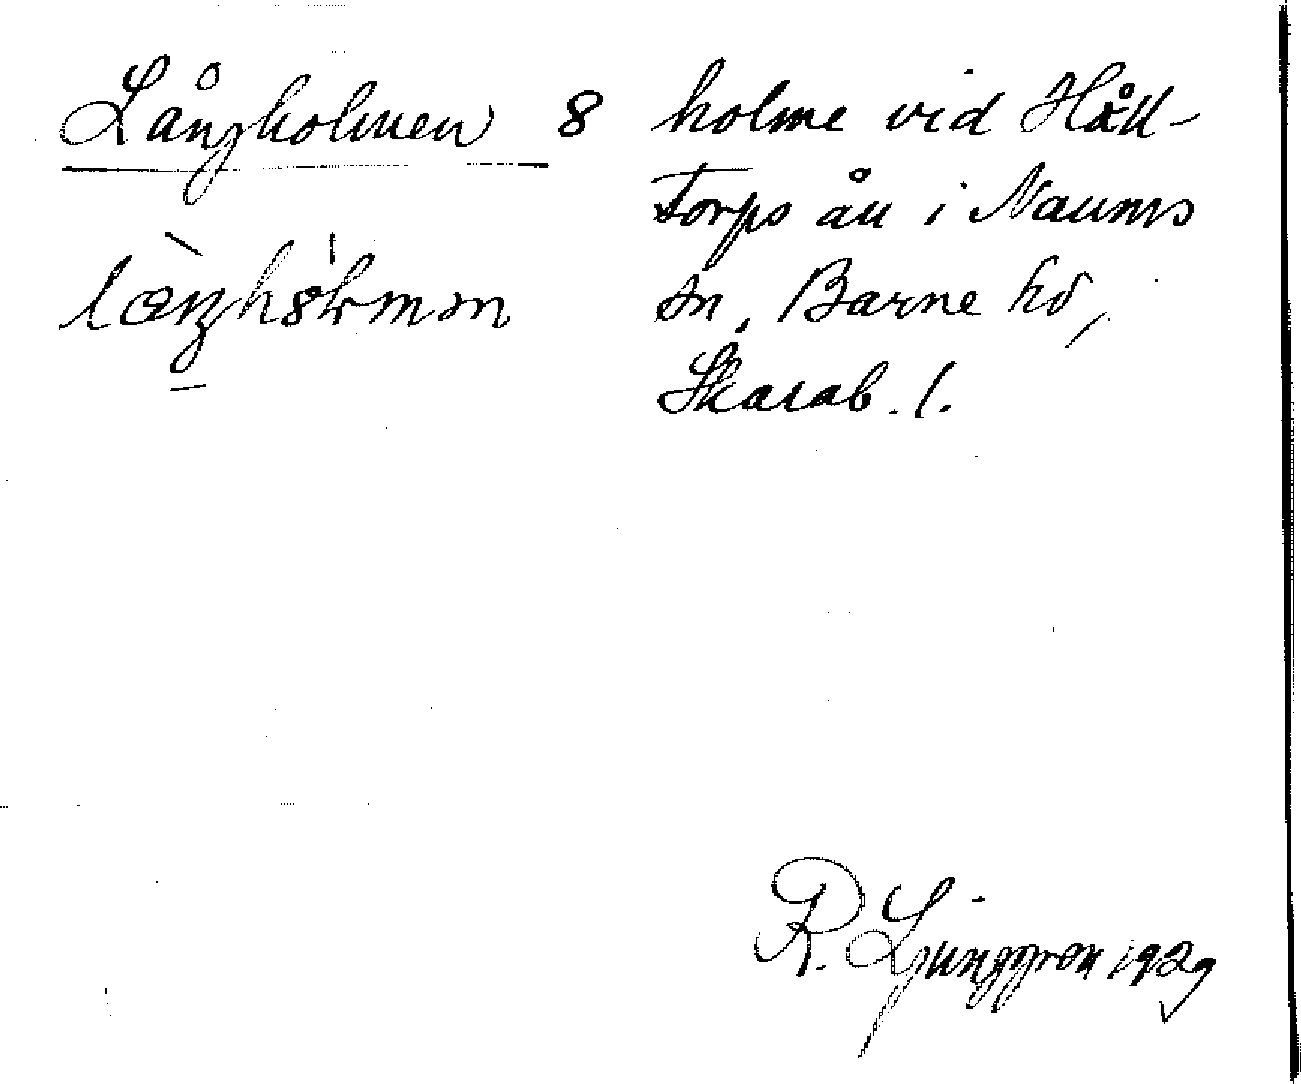 Långholmen 8 holme vid Håll-
torps ån i Naums
sn, Barne hd,
Skarab. l.
R. Ljunggren 1929